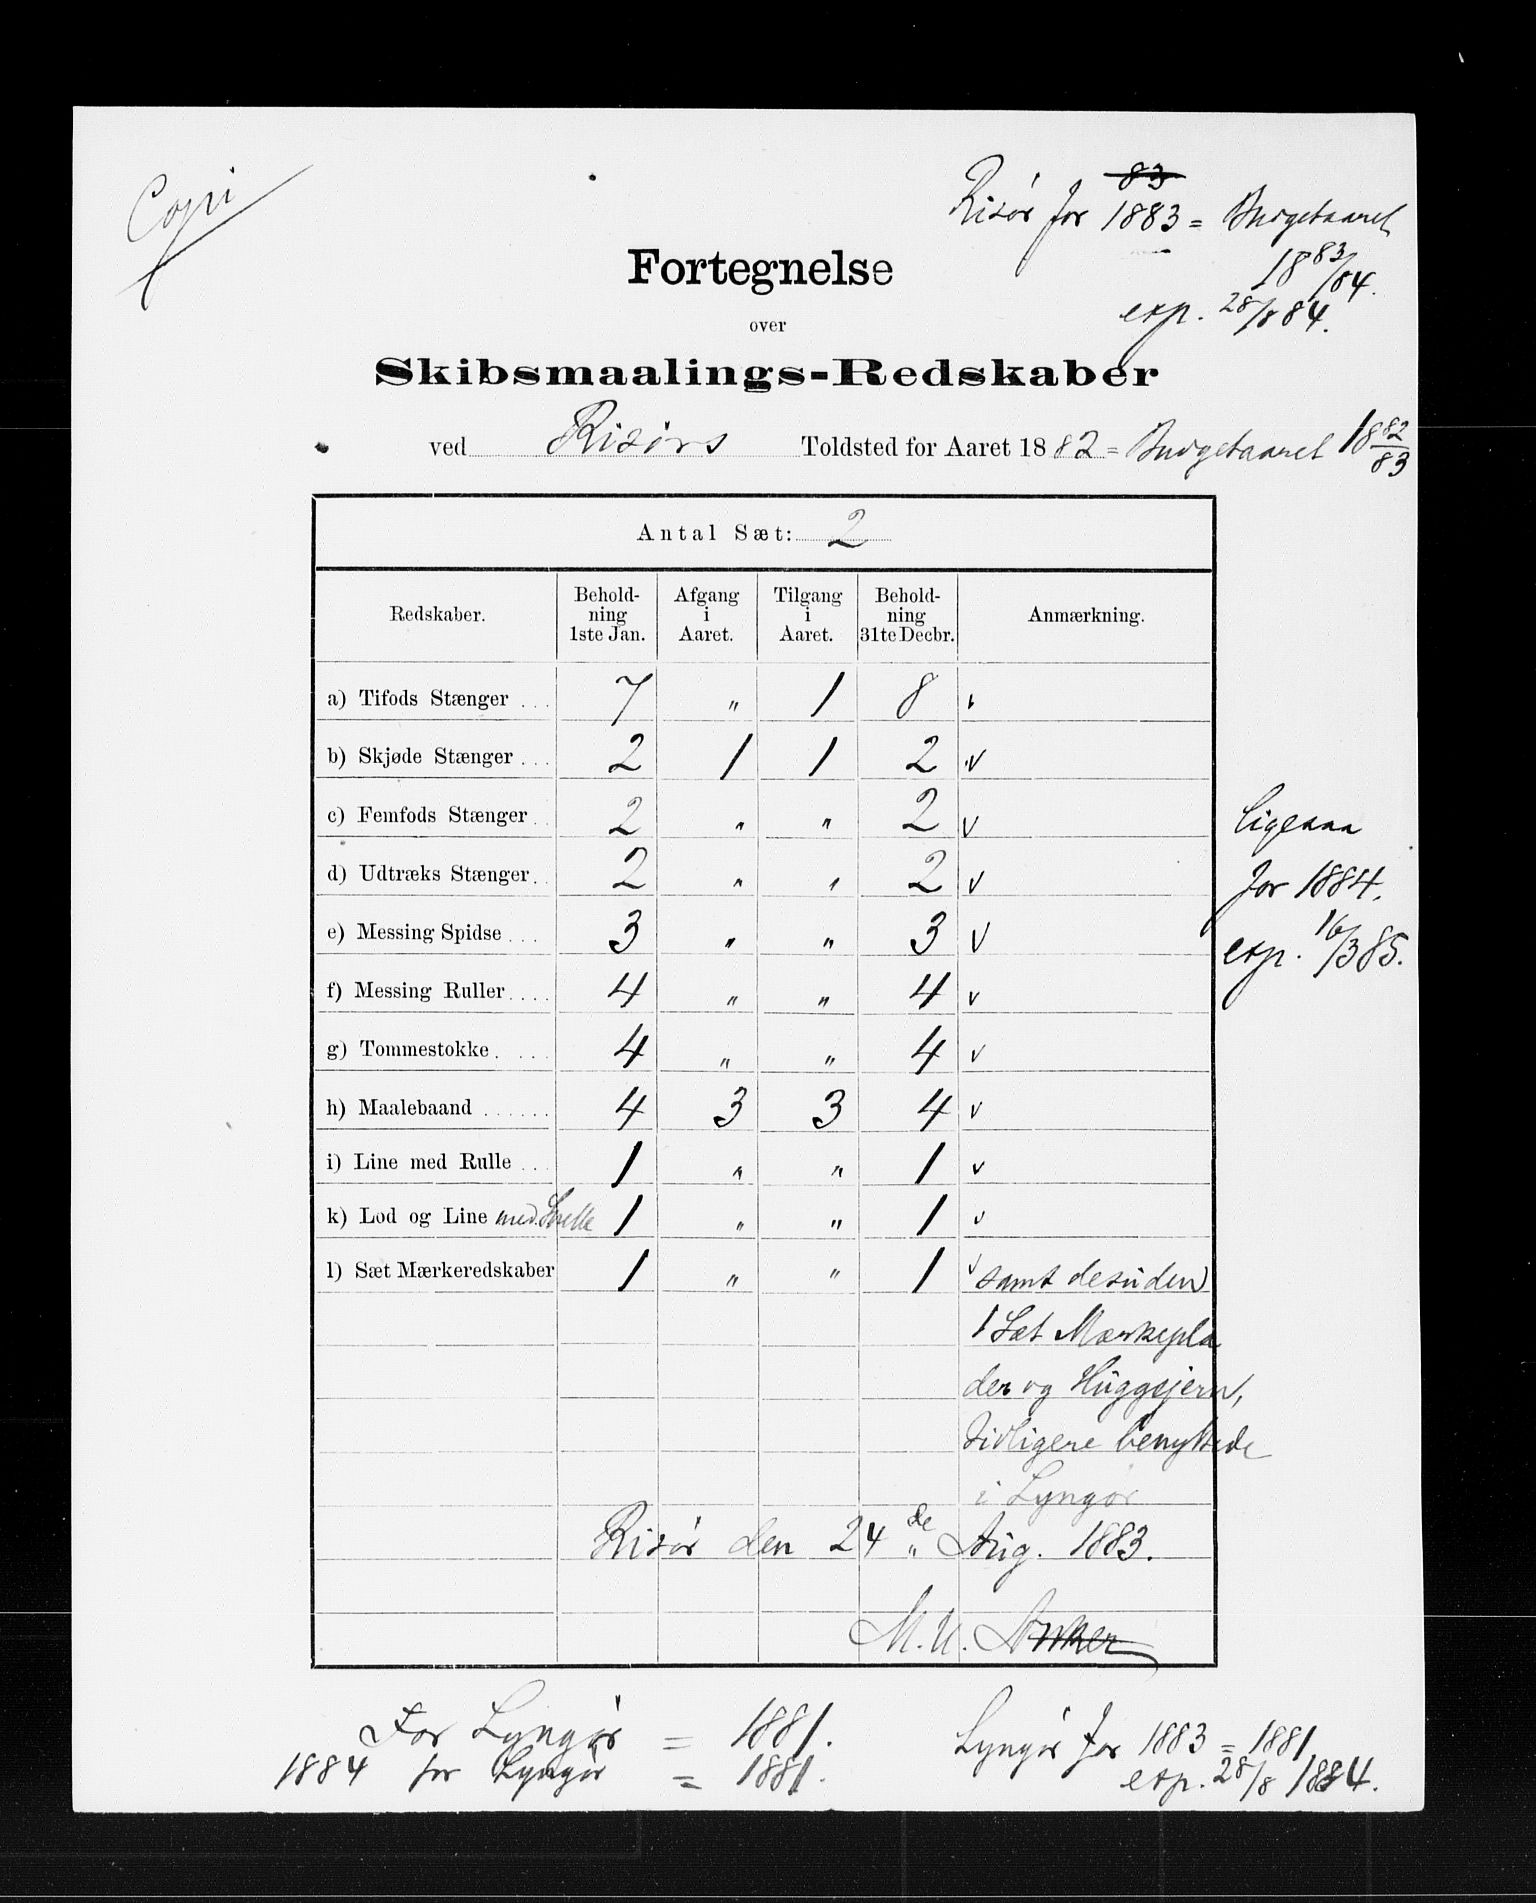 Copi
83
Risør for 1883 = Budgetaaret
18 83/84.
exp. 28/8 84.
Fortegnelse
over
Skibsmaalings-Redskaber
ved Risørs Toldsted for Aaret 1882 = Budgetaaret 18 82/83
Antal Sæt: 2
Redskaber. Beholdning 1ste Jan. Afgang i Aaret. Tilgang i Aaret. Beholdning 31te Decbr. Anmærkning.
a) Tifods Stænger . . . 7 " 1 8
b) Skjøde Stænger . . . 2 1 1 2 v
c) Femfods Stænger . 2 " " 2 v
d) Udtræks Stænger . . 2 " " 2 v
e) Messing Spidse . . . 3 " " 3 v
f) Messing Ruller . . . . 4 " " 4 v
g) Tommestokke . . . . 4 " " 4 v
h) Maalebaand . . . . . . 4 3 3 4 v
i) Line med Rulle . . . 1 " " 1 v
k) Lod og Line med Snelle 1 " " 1 v
l) Sæt Mærkeredskaber 1 " " 1 v samt desuden
1 Sæt Mærkepla
der og Huggejern,
tidligere benyttede
i Lyngør
Ligesaa
for 1884.
exp. 16/3 85.
Risør den 24de Aug. 1883.
M. U. Anker
For Lyngør = 1881.
1884 for Lyngør = 1881.
Lyngør for 1883 = 1881
exp. 28/8 1884.